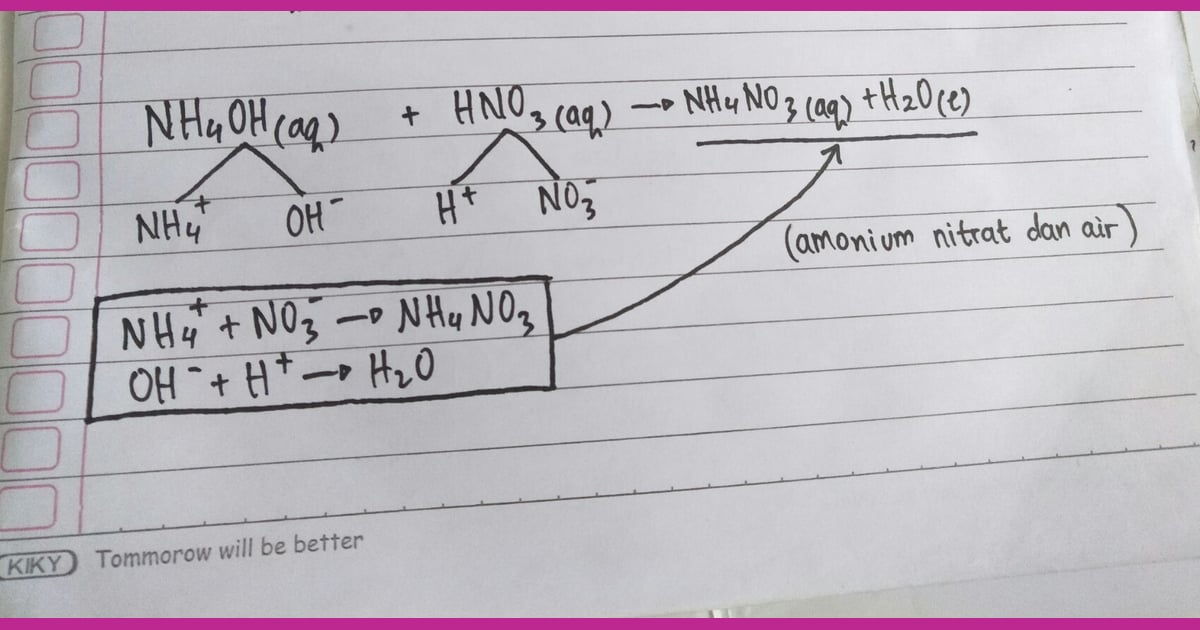 NH₄OH(aq) + HNO₃(aq) → NH₄NO₃(aq) + H₂O(l)
NH₄⁺ OH⁻ H⁺ NO₃⁻
(amonium nitrat dan air)
NH₄⁺ + NO₃⁻ → NH₄NO₃
OH⁻ + H⁺ → H₂O
KIKY Tommorow will be better